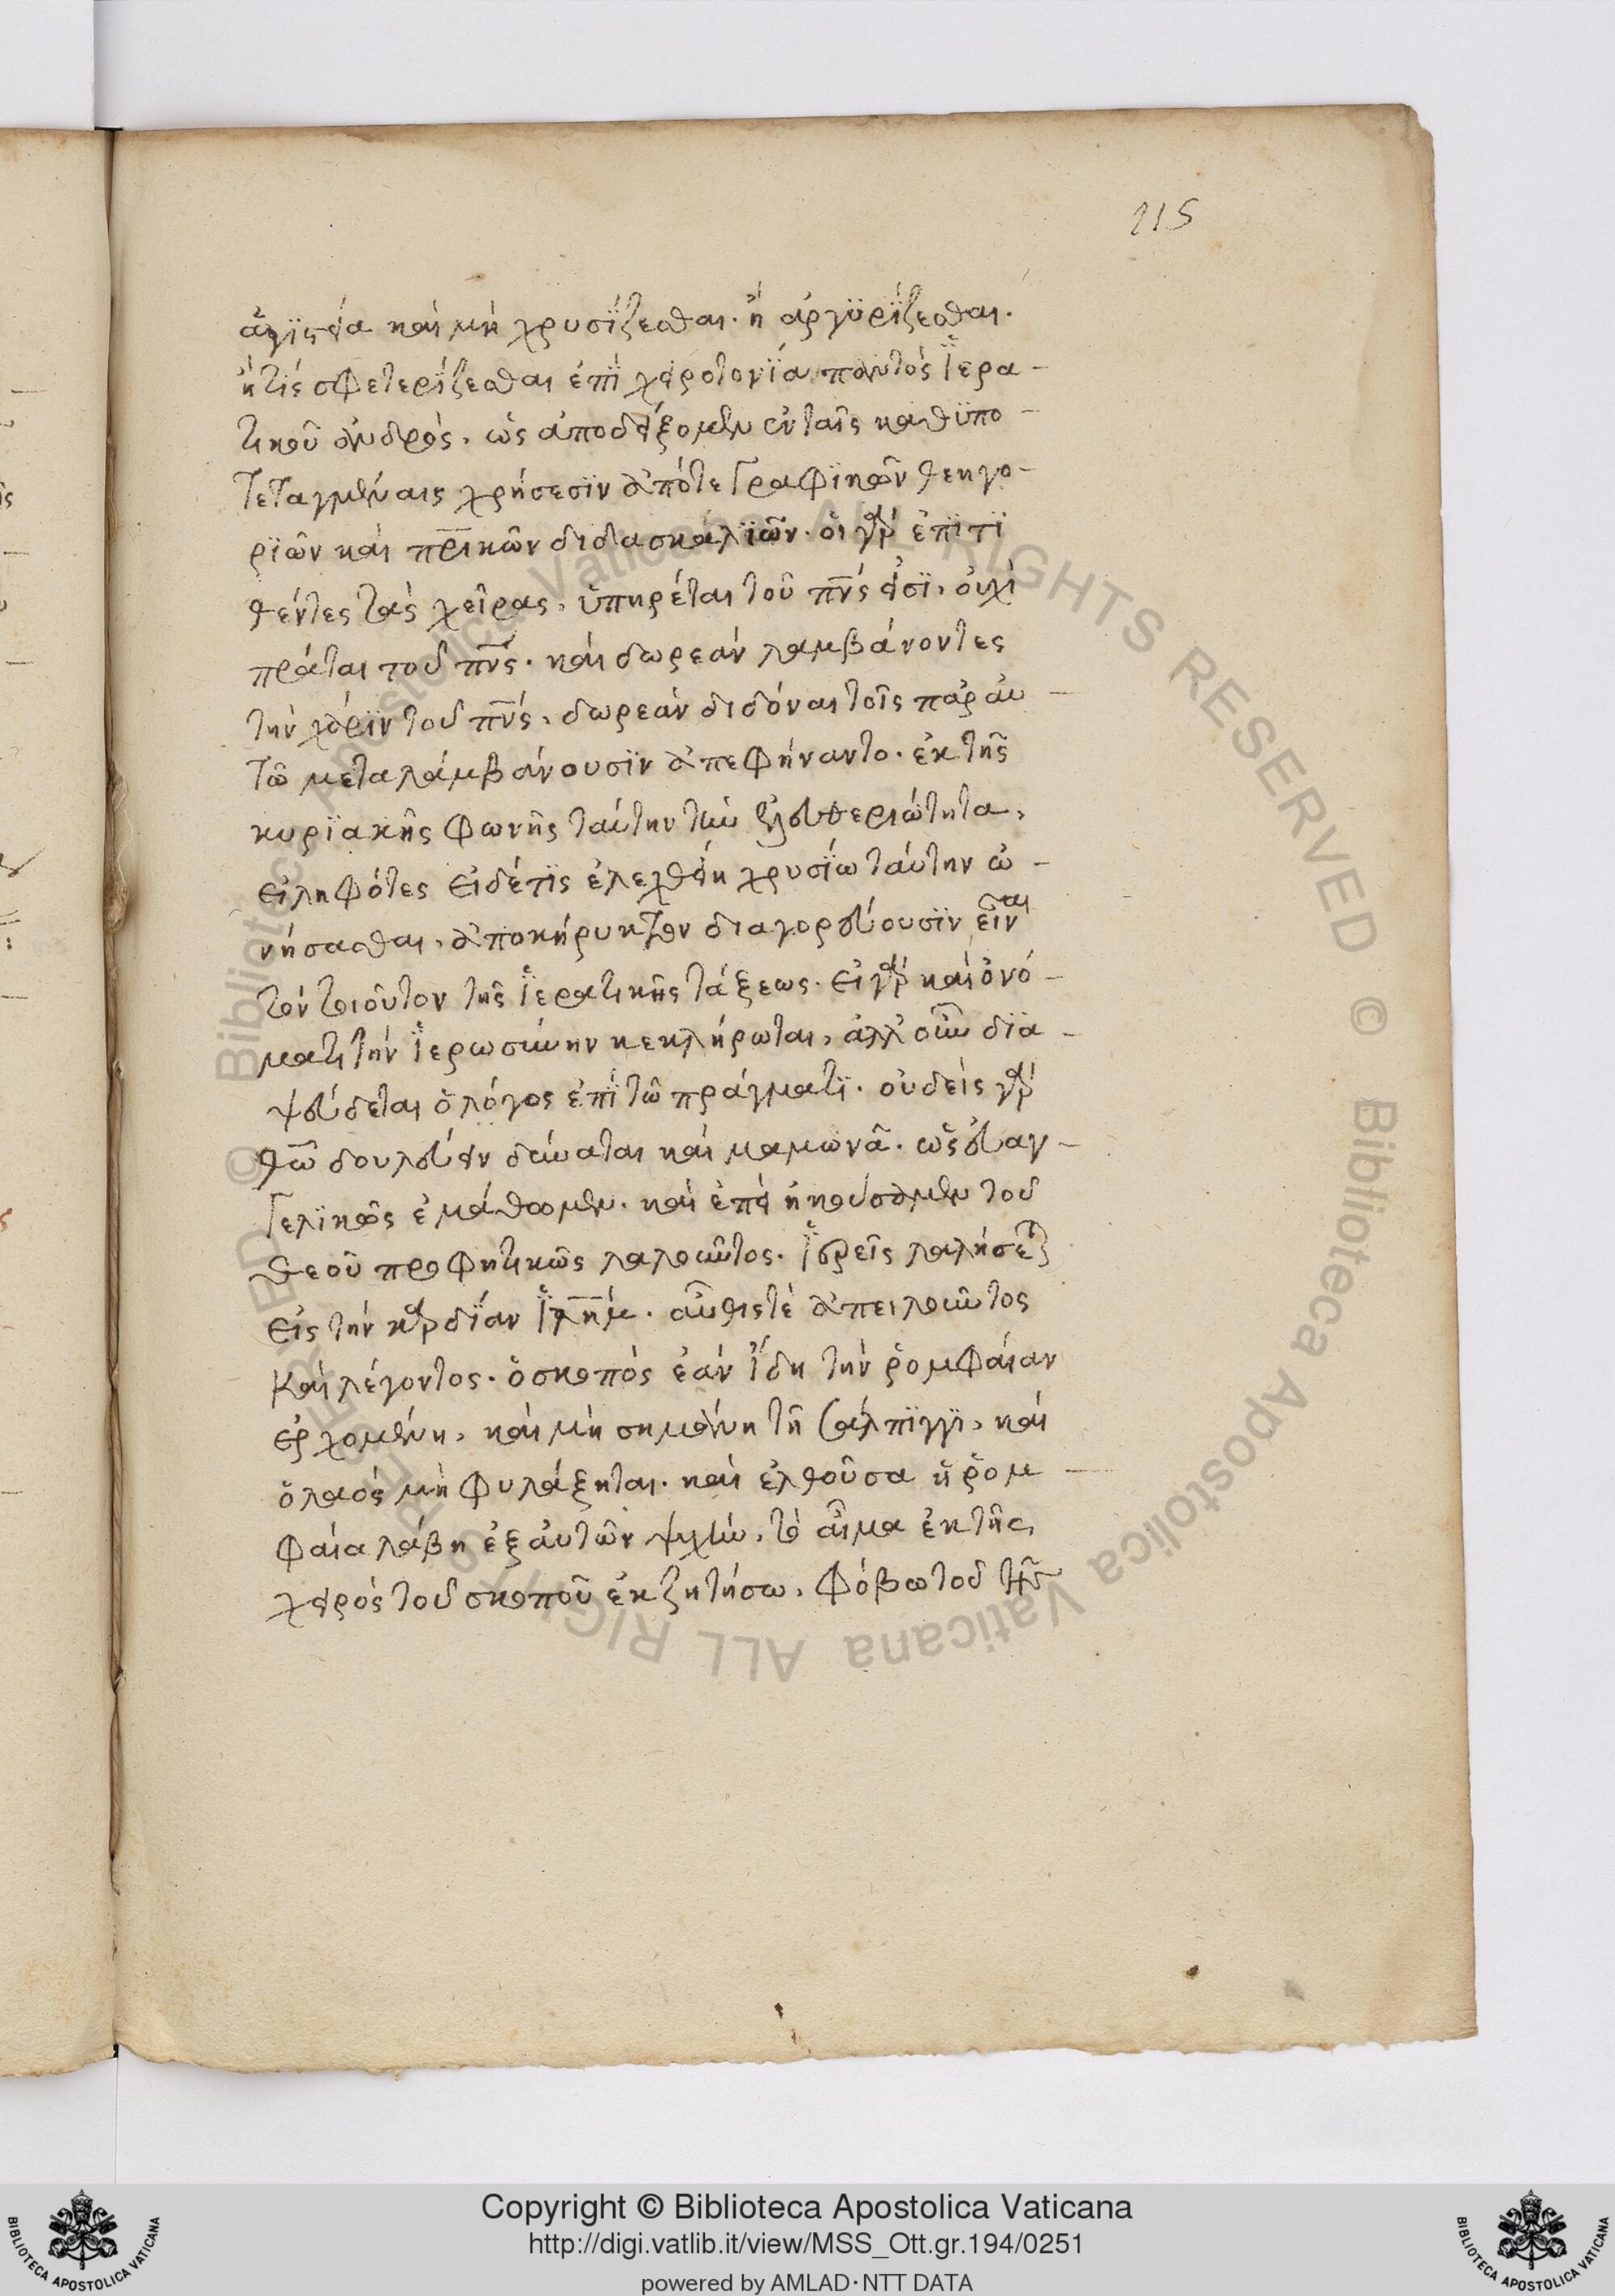 215
ἁγιστεία καὶ μὴ χρυσΐζεσθαι. ἢ ἀργϋρΐζεσθαι.
ἤ τϊ σφετερΐζεσθαι ἐπῒ χειροτονΐα παντὸς ϊερα-
τικοῦ ἀνδρός. ὡς ἀποδείξομεν ἐν ταῖς καθϋπο-
τεταγμέναις χρήσεσϊν ἀπό τε γραφϊκῶν θεηγο-
ρϊῶν καὶ πρικῶν διδασκαλϊῶν. οἱ γὰρ ἐπϊτϊ
θέντες τὰς χεῖρας, ὑπηρέται τοῦ πνς εἰσϊ, οὐχὶ
πράται τοῦ πνς. καὶ δωρεὰν λαμβάνοντες
τὴν χάρϊν τοῦ πνς, δωρεὰν διδόναι τοῖς παρ αὐ-
τῶ μεταλαμβάνουσϊν ἀπεφήναντο. ἐκ τῆς
κυρϊακῆς φωνῆς ταύτην τὴν ἐλευθεριώτητα,
εἰληφότες εἰ δέ τϊς ἐλεγχθείη χρυσΐω ταύτην ὠ-
νήσασθαι, ἀποκήρυκτον διαγορεύουσϊν εἶναι
τὸν τοιοῦτον τῆς ϊερατικῆς τάξεως. εἰ γὰρ καὶ ὀνό-
ματι τὴν ϊερωσύνην κεκλήρωται, ἀλλ οὖν δϊα-
ψεύδεται ὁ λόγος ἐπῒ τῶ πράγματϊ. οὐδεὶς γὰρ
θῶ δουλεύειν δύναται καὶ μαμωνᾶ. ὡς εὐαγ-
γελϊκῶς ἐμάθομεν. καὶ ἐπεὶ ἠκούσαμεν τοῦ
θεοῦ προφητικῶς λαλοῦντος. ϊερεῖς λαλήσετε
εἰς τὴν καρδΐαν ϊλημ. αὖθις τὲ ἀπειλοῦντος
καὶ λέγοντος. ὁ σκοπὸς ἐὰν ἴδη τὴν ῥομφαίαν
ἐρχομένη, καὶ μὴ σημάνη τῆ σάλπϊγγϊ, καὶ
ὁ λαὸς μὴ φυλάξηται. καὶ ἐλθοῦσα ἡ ῥομ-
φαία λάβη ἐξ αὐτῶν ψυχὴν, τὸ αἷμα ἐκ τῆς
χειρὸς τοῦ σκοποῦ ἐκζητήσω. φόβω τοῦ
Copyright © Biblioteca Apostolica Vaticana
http://digi.vatlib.it/view/MSS_Ott.gr.194/0251
powered by AMLAD·NTT DATA